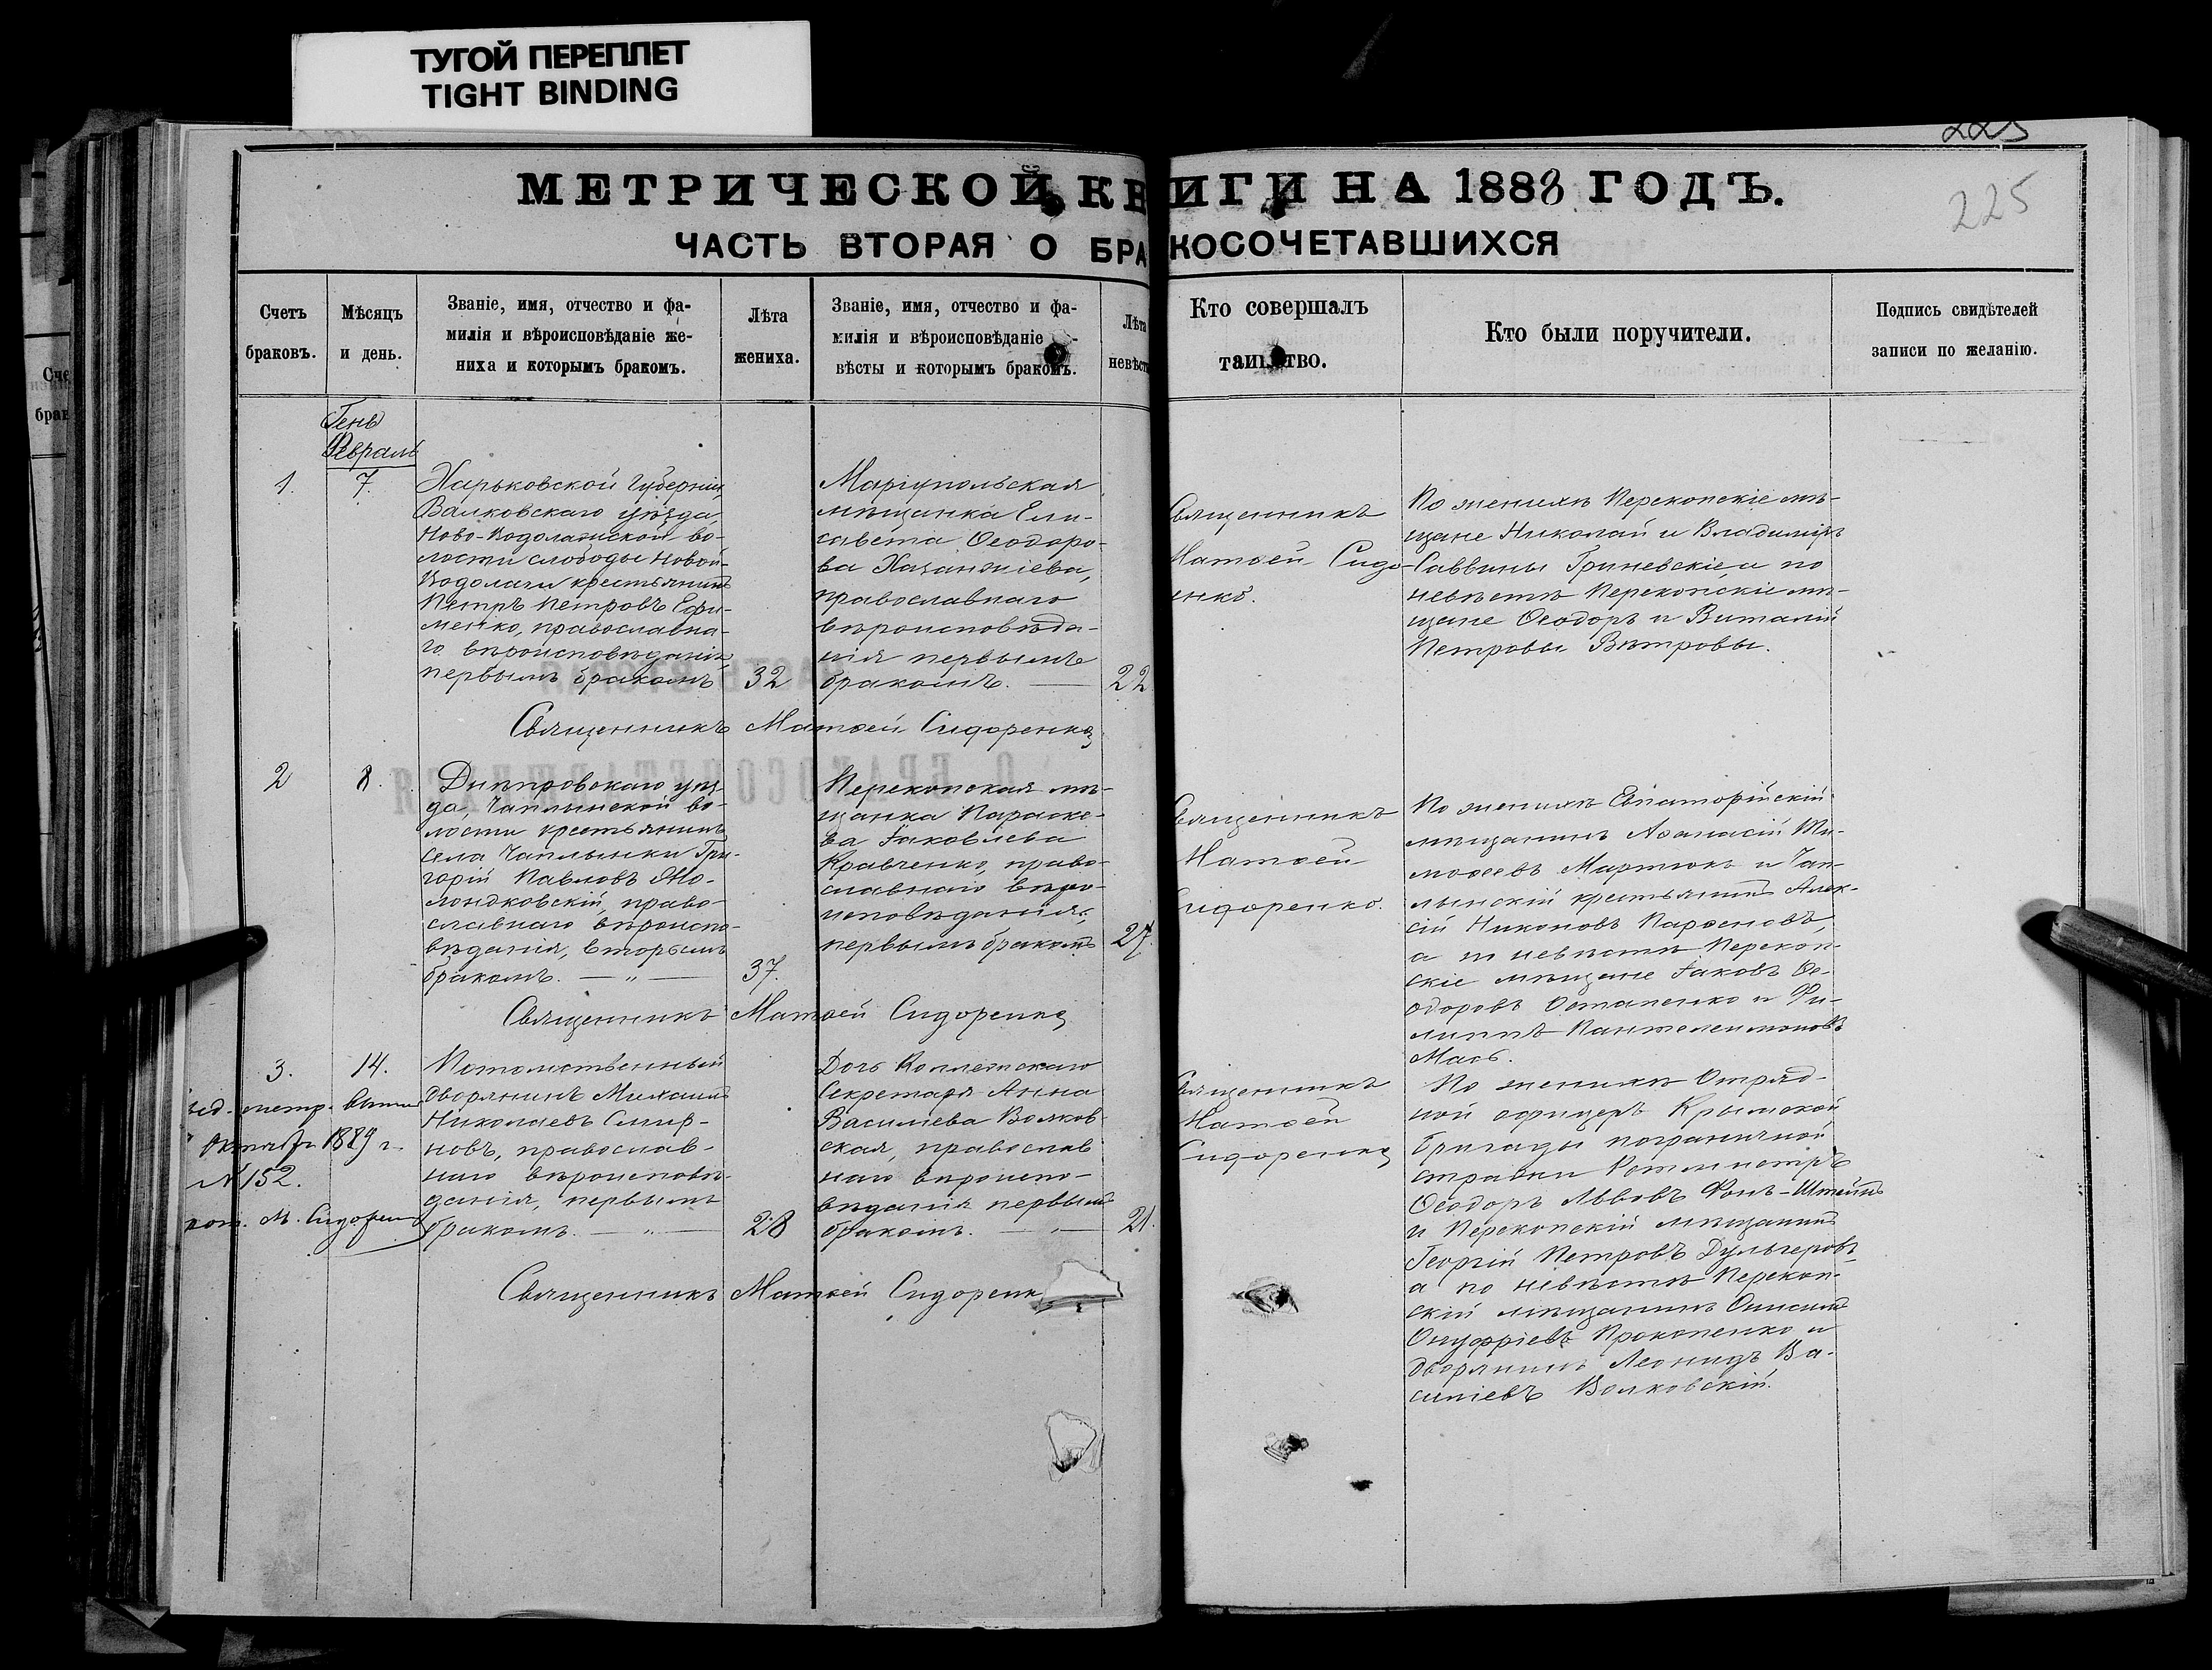 ТУГОЙ ПЕРЕПЛЕТ
TIGHT BINDING
225
225
МЕТРИЧЕСКОЙ КНИГИ НА 1888 ГОДЪ.
ЧАСТЬ ВТОРАЯ О БРАКОСОЧЕТАВШИХСЯ
Счетъ
браковъ.
Мѣсяцъ
и день.
Званіе, имя, отчество и фа-
милія и вѣроисповѣданіе же-
ниха и которымъ бракомъ.
Лѣта
жениха.
Званіе, имя, отчество и фа-
милія и вѣроисповѣданіе
вѣсты и которымъ бракомъ.
Лѣта
невѣст
Кто совершалъ
таинство.
Кто были поручители.
Подпись свидѣтелей
записи по желанію.
Февраль
1.
7.
Харьковской губерніи
Валковскаго уѣзда,
Ново-Водолажской во-
лости слободы Новой-
Водолаги крестьянинъ
Петръ Петровъ Ефи-
менко, православна-
го вѣроисповѣданія
первымъ бракомъ
32
Маріупольская
мѣщанка Ели-
савета Ѳеодоро-
ва Хаджиіева,
православнаго
вѣроисповѣда-
нія первымъ
бракомъ.
22
Священникъ
Матѳей Сидо-
енко.
По женихѣ Перекопскіе мѣ-
щане Николай и Владиміръ
Саввины Гриневскіе, а по
невѣстѣ Перекопскіе мѣ-
щане Ѳеодоръ и Виталій
Петровы Вѣтровы.
Священникъ Матѳей Сидоренко
2
8.
Днѣпровскаго уѣз-
да, Чаплынской во-
лости крестьянинъ
села Чаплынки Гри-
горій Павловъ
православнаго вѣроиспо-
вѣданія, вторымъ
бракомъ. — " —
37.
Перекопская мѣ-
щанка Параске-
ва Іаковлева
Кравченко, право-
славнаго вѣро-
исповѣданія,
первымъ бракомъ
27.
Священникъ
Матѳей
Сидоренко.
По женихѣ Евпаторійскій
мѣщанинъ Аѳанасій Ти-
моѳеевъ Мартюкъ и Чап-
лынскій крестьянинъ Алек-
сій Никоновъ Парѳеновъ,
а по невѣстѣ Перекоп-
скіе мѣщане Іаковъ Ѳе-
одоровъ Остапенко и Фи-
липпъ Пантелеимоновъ
Мась.
Священникъ Матѳей Сидоренко
3.
14.
метр. выпис
Октября 1889 г.
№ 152.
М. Сидоренко
Потомственный
дворянинъ Михаилъ
Николаевъ Смир-
новъ, православ-
наго вѣроисповѣ-
данія, первымъ
бракомъ. — " —
28
Дочь Коллежскаго
Секретаря Анна
Васильева Волков-
ская, православ
наго вѣроиспо-
вѣданія первымъ
бракомъ. — " —
21.
Священникъ
Матѳей
Сидоренко
По женихѣ Отряд-
ной офицеръ Крымской
бригады пограничной
стражи Ротмистръ
Ѳеодоръ Львовъ Фонъ-Штейнъ
и Перекопскій мѣщанинъ
Георгій Петровъ Дульгеровъ
а по невѣстѣ Перекоп-
скій мѣщанинъ Онисимъ
Онуфріевъ Прокопенко и
дворянинъ Леонидъ Ва-
силіевъ Волковскій.
Священникъ Матѳей Сидоренк